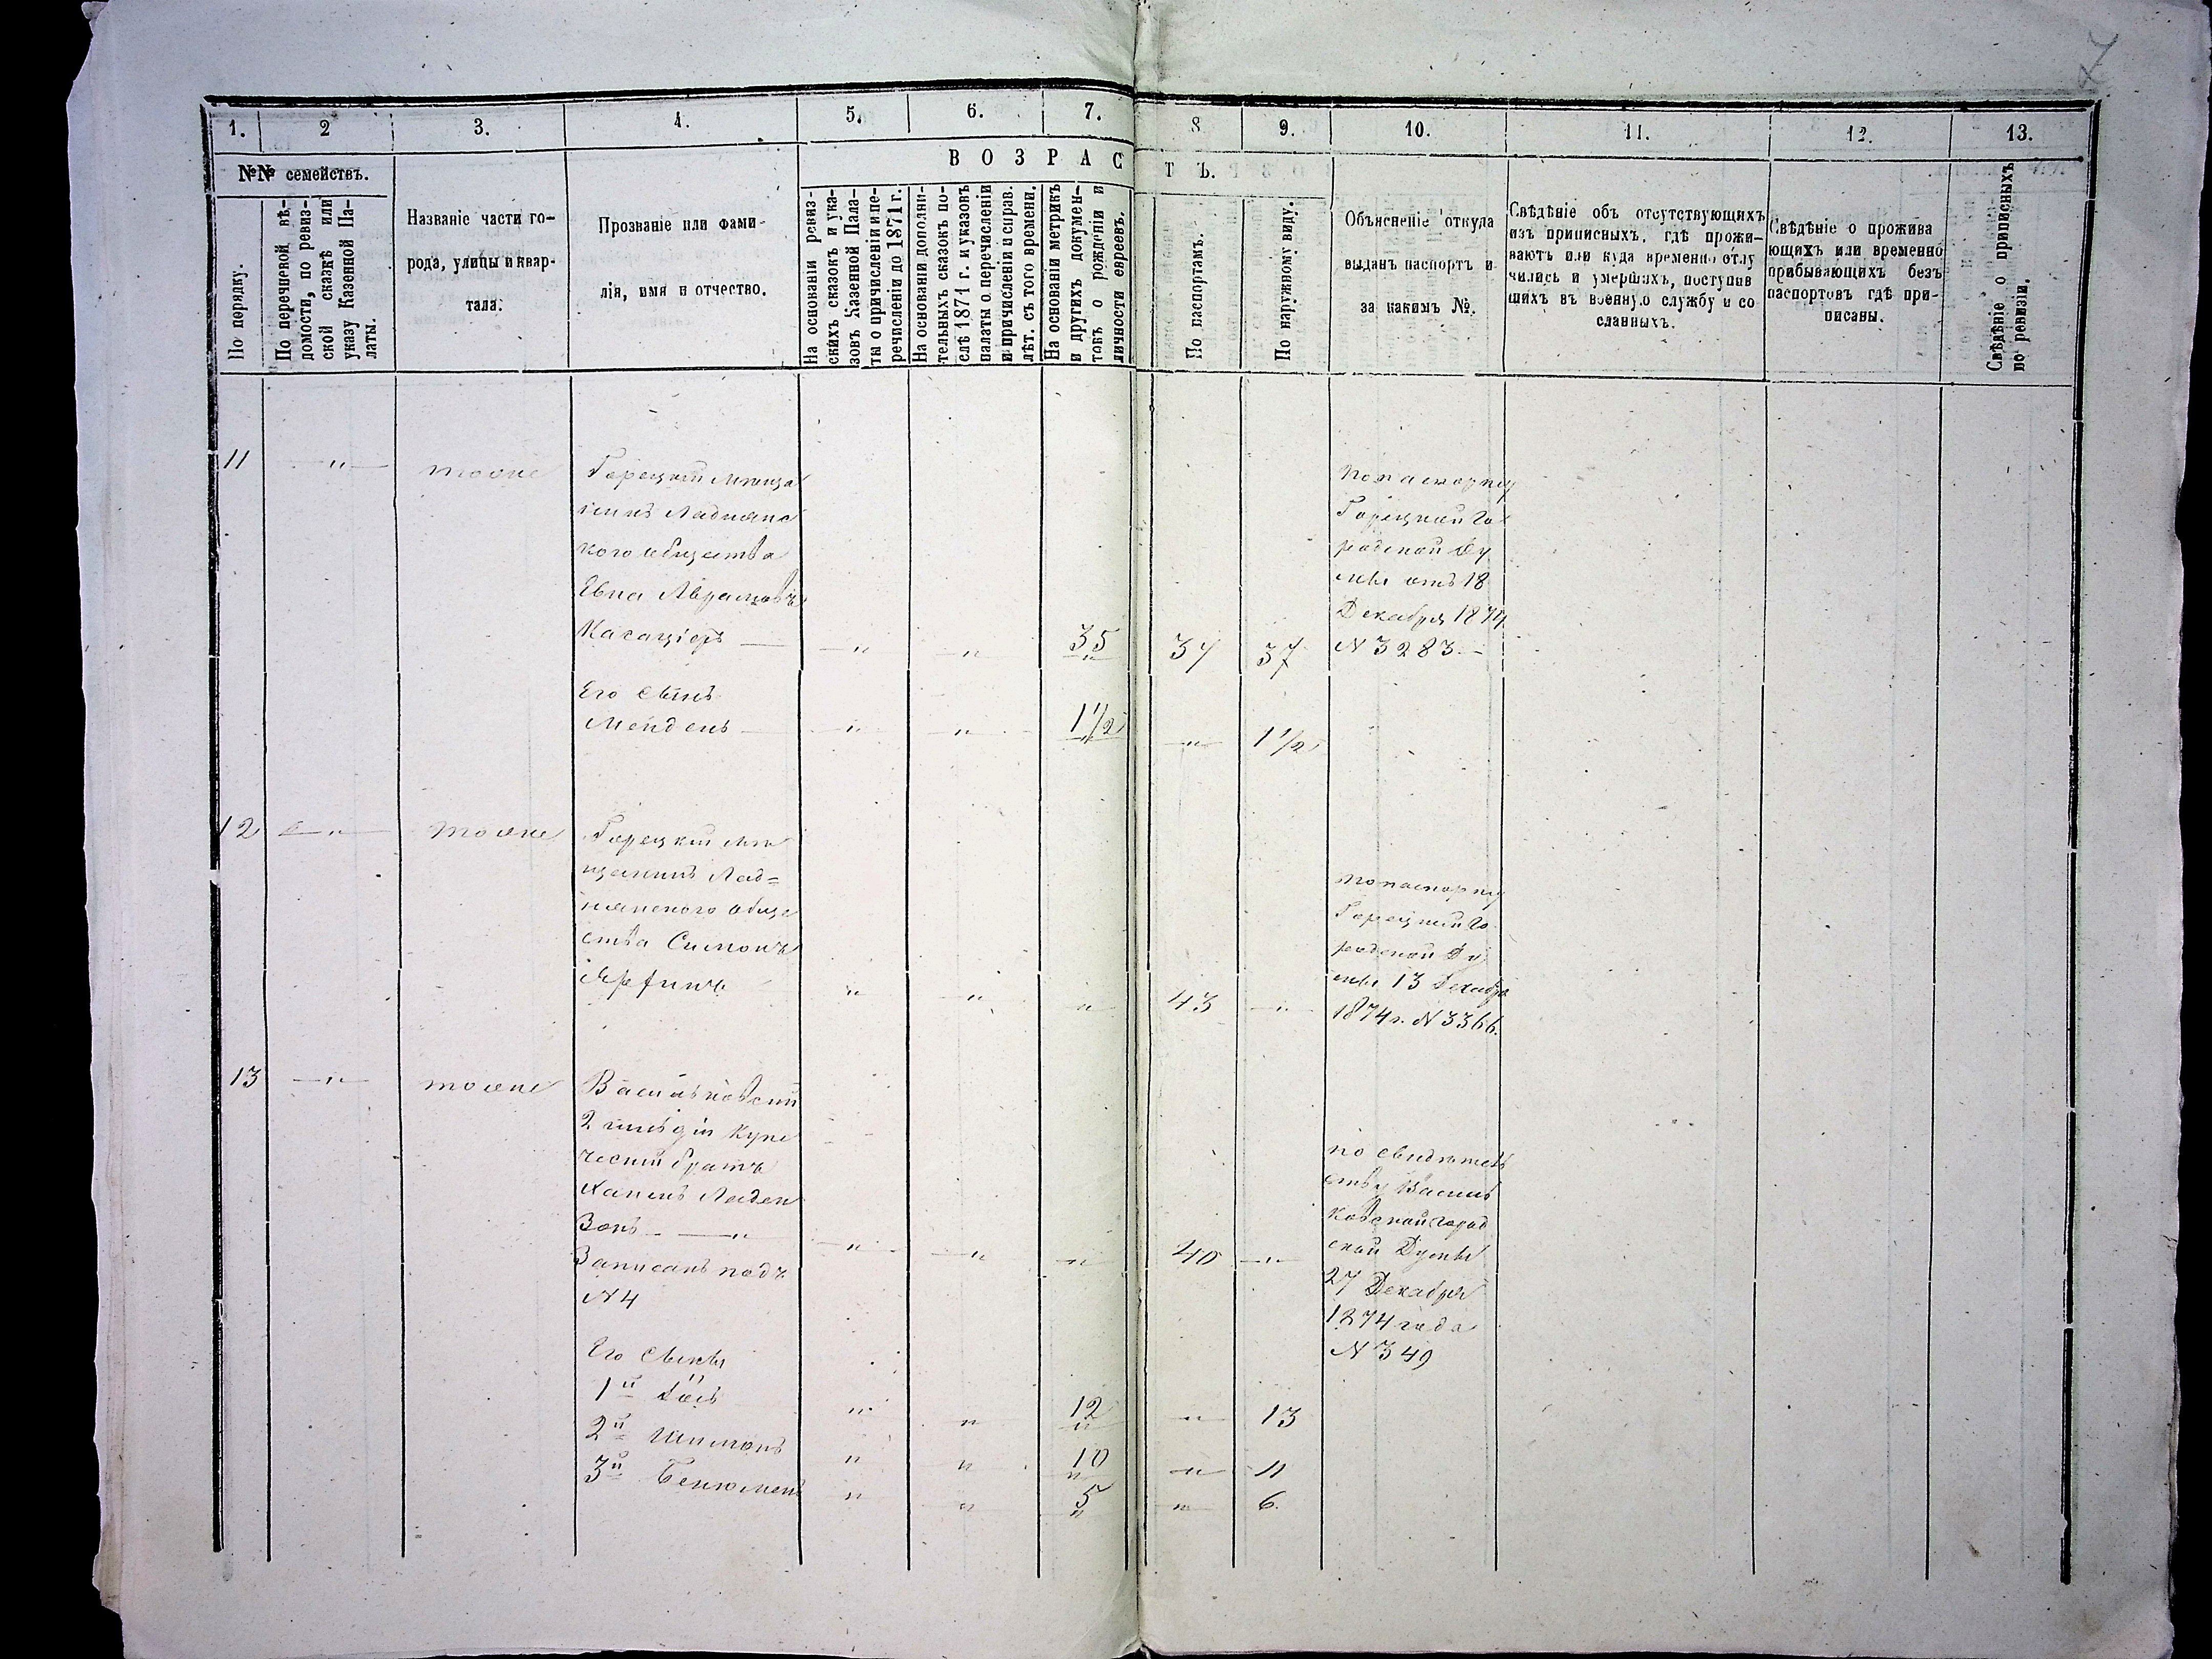 7
1. 2 3. 4. 5. 6. 7. 8 9. 10. 11. 12. 13.
№№ семействъ.
По порядку.
По перечневой вѣ-
домости, по ревиз-
ской сказкѣ или
указу Казенной Па-
латы.
Названіе части го-
рода, улицы и квар-
тала.
Прозваніе или фами-
лія, имя и отчество.
ВОЗРАСТЪ.
На основаніи ревиз-
скихъ сказокъ и ука-
зовъ Казенной Пала-
ты о причисленіи и пе-
речисленіи до 1871 г.
На основаніи дополни-
тельныхъ сказокъ по-
слѣ 1871 г. и указовъ
палаты о перечисленіи
и причисленіи и справ.
лѣт. съ того времени.
На основаніи метрикъ
и другихъ докумен-
товъ о рожденіи и
личности евреевъ.
По паспортамъ.
По наружному виду.
Объясненіе откуда
выданъ паспортъ и
за какимъ №.
Свѣдѣніе объ отсутствующихъ
изъ приписныхъ, гдѣ прожи-
ваютъ или куда временно отлу
чились и умершихъ, поступив
шихъ въ военную службу и со
сланныхъ.
Свѣдѣніе о прожива
ющихъ или временно
прибывающихъ безъ
паспортовъ гдѣ при-
писаны.
Свѣдѣніе о приписныхъ
по ревизіи.
11 — " — тоже
Горецкій мѣща
нинъ Ляднянс
кого общества
Евна Аврамовъ
— " " 35 37 37
Его Сынъ
Мендель — " " 1 1/2 — " — 1 1/2
по паспорту
Горецкой Го
родской Ду
мы отъ 18
Декабря 1874
N 3283. –
12 — " — тоже
Горецкій мѣ
щанинъ Ляд=
нянского обще
ства Симонъ
" " " 43 — " —
по паспорту
Горецкой Го
родской Ду
мы 13 Декабря
1874 г. N 3366.
13 — " — тоже
Васильковскій
2 гильдіи Купе
ческій братъ
Хаимъ Лейден
Зонъ — " — " " " 40 — " —
Записанъ подъ
N 4
по свидѣтель
ству Василь
ковской город
ской Думы
27 Декабря
1874 года
N 349
Его Сыны
1й " " 12 — " — 13
2й Шимонъ " " 10 — " — 11
3й Бенюменъ " " 5 — " — 6.